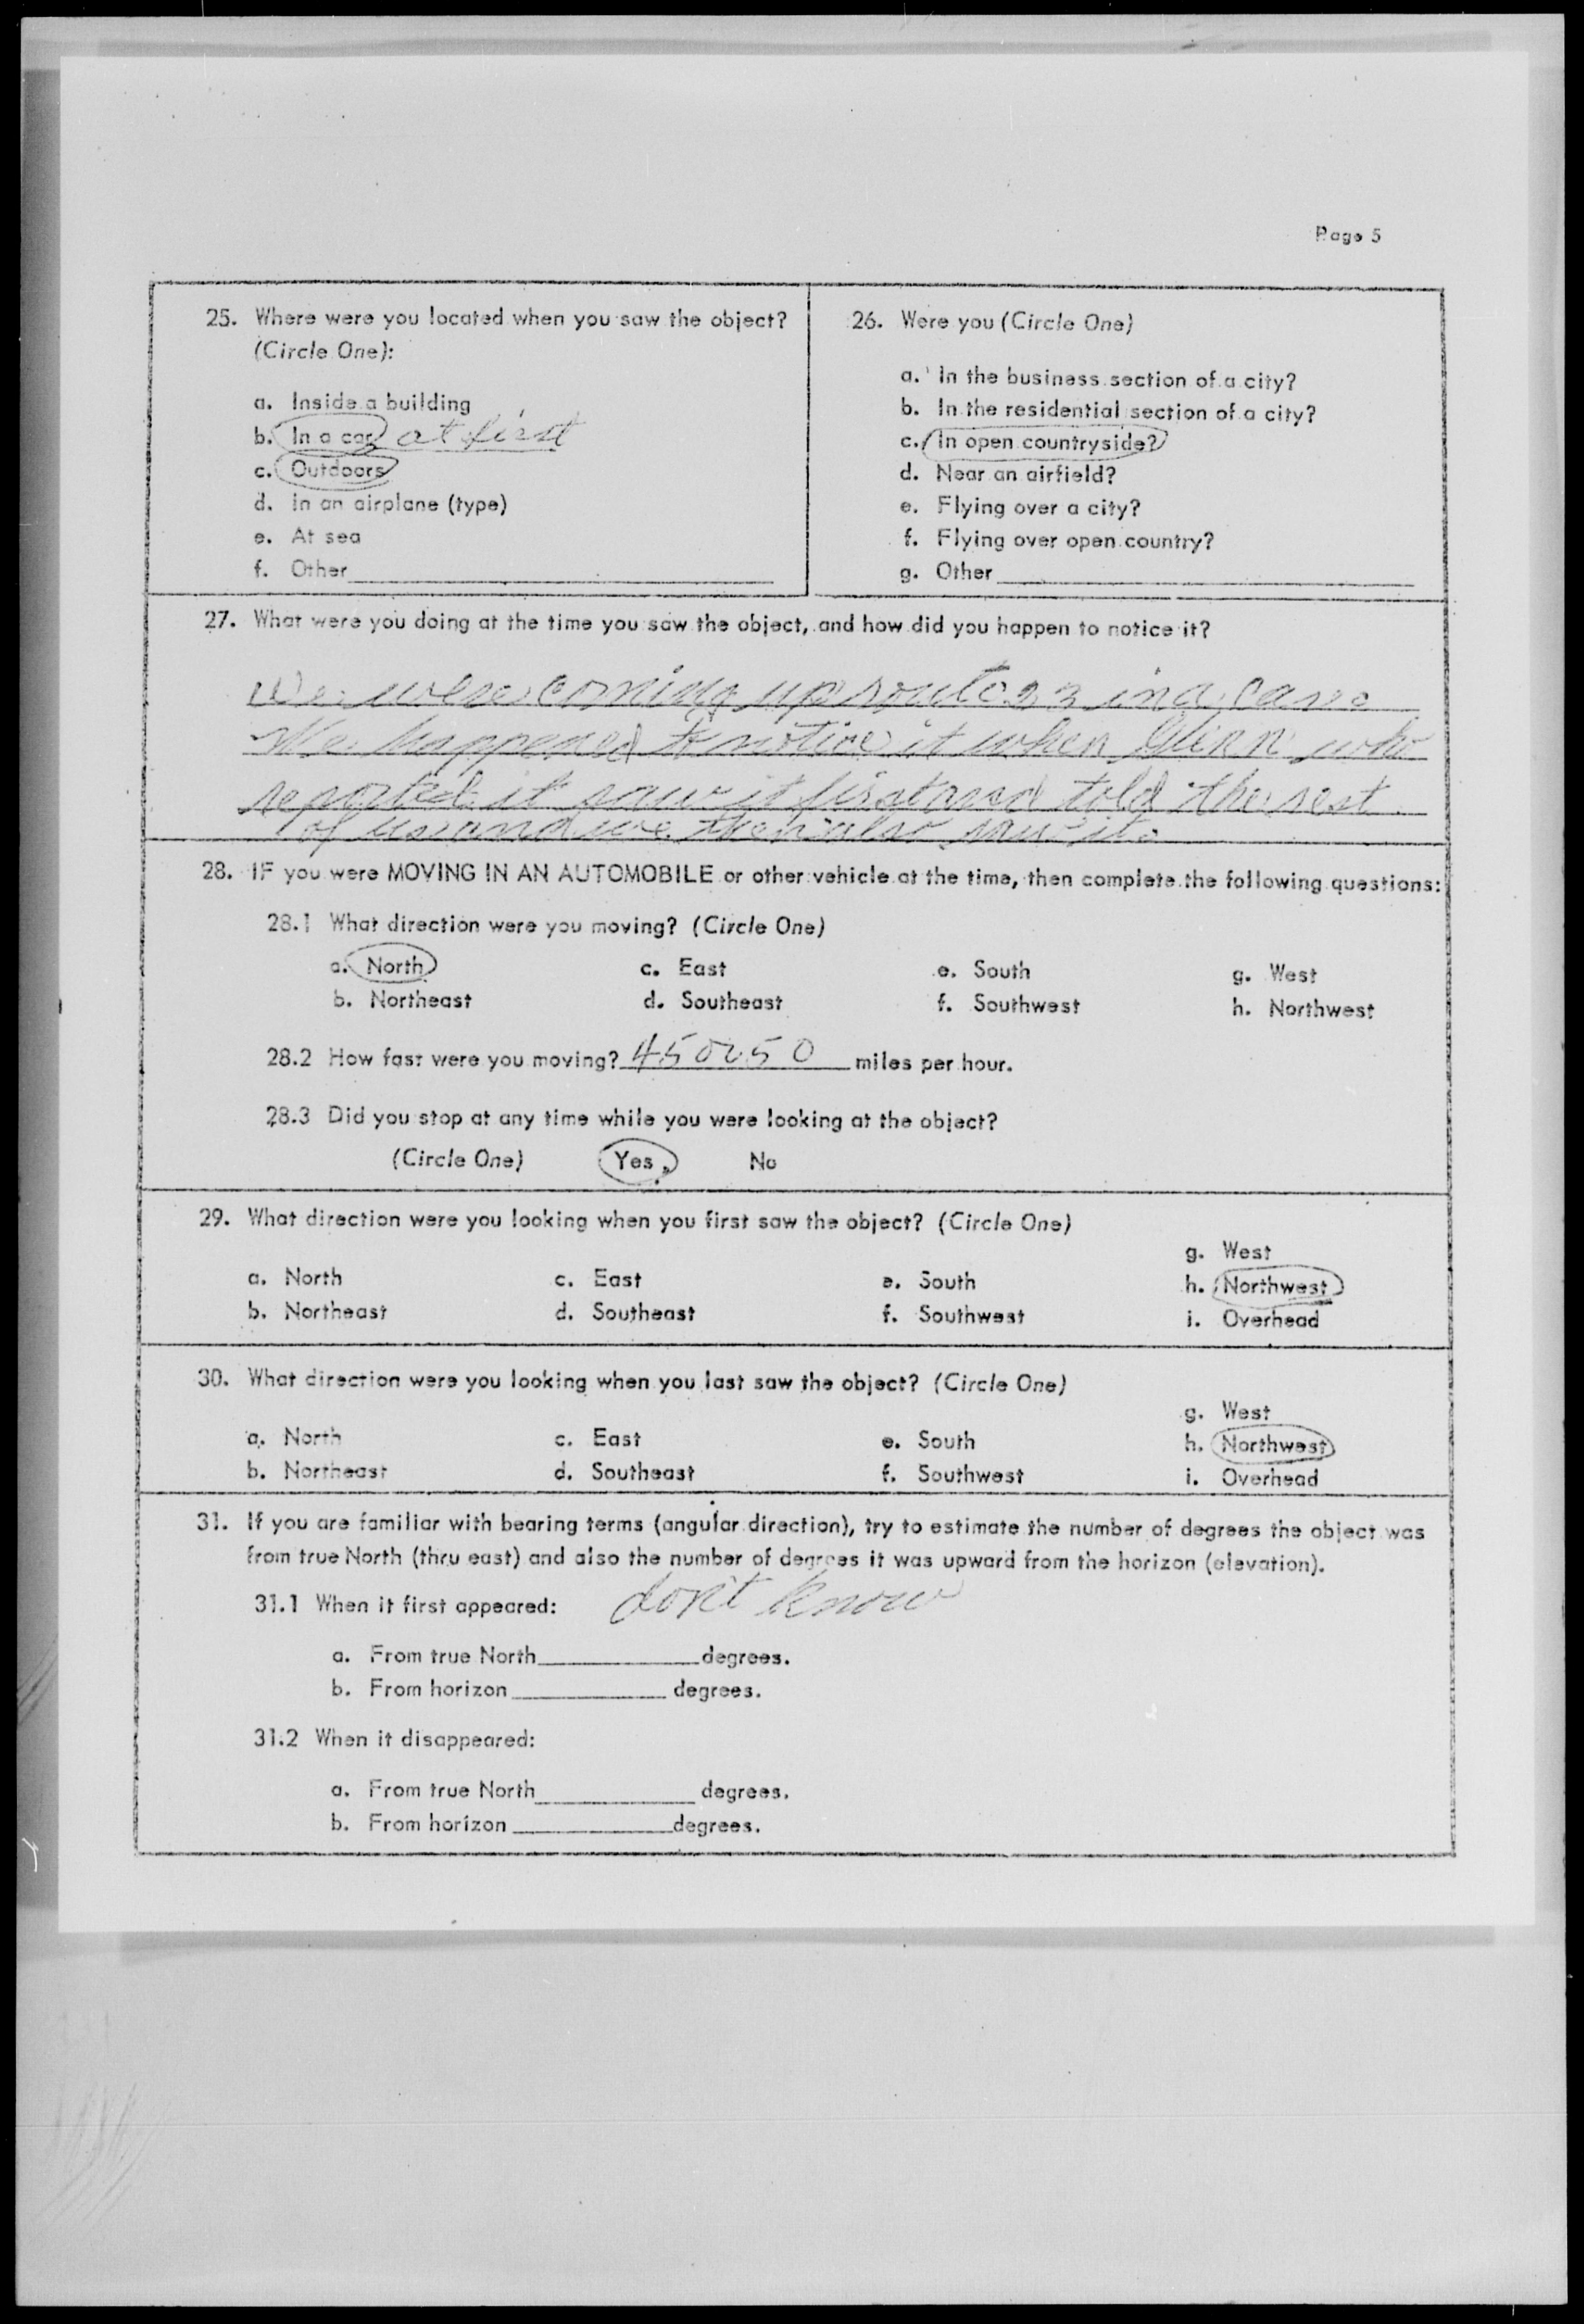 Page 5
25. Where were you located when you saw the object?
(Circle One):
a. Inside a building
b. In a car at first
c. Outdoors
d. In an airplane (type)
e. At sea
f. Other
26. Were you (Circle One)
a. In the business section of a city?
b. In the residential section of a city?
c. In open countryside?
d. Near an airfield?
e. Flying over a city?
f. Flying over open country?
g. Other
27. What were you doing at the time you saw the object, and how did you happen to notice it?
We were coming up route 23 in a car.
We happened to notice it when Glenn who
reported it saw it first and told the rest
of us and we then also saw it.
28. IF you were MOVING IN AN AUTOMOBILE or other vehicle at the time, then complete the following questions:
28.1 What direction were you moving? (Circle One)
a. North c. East e. South g. West
b. Northeast d. Southeast f. Southwest h. Northwest
28.2 How fast were you moving? 45 or 50 miles per hour.
28.3 Did you stop at any time while you were looking at the object?
(Circle One) Yes No
29. What direction were you looking when you first saw the object? (Circle One)
g. West
a. North c. East e. South h. Northwest
b. Northeast d. Southeast f. Southwest i. Overhead
30. What direction were you looking when you last saw the object? (Circle One)
g. West
a. North c. East e. South h. Northwest
b. Northeast d. Southeast f. Southwest i. Overhead
31. If you are familiar with bearing terms (angular direction), try to estimate the number of degrees the object was
from true North (thru east) and also the number of degrees it was upward from the horizon (elevation).
31.1 When it first appeared: don't know
a. From true North degrees.
b. From horizon degrees.
31.2 When it disappeared:
a. From true North degrees.
b. From horizon degrees.